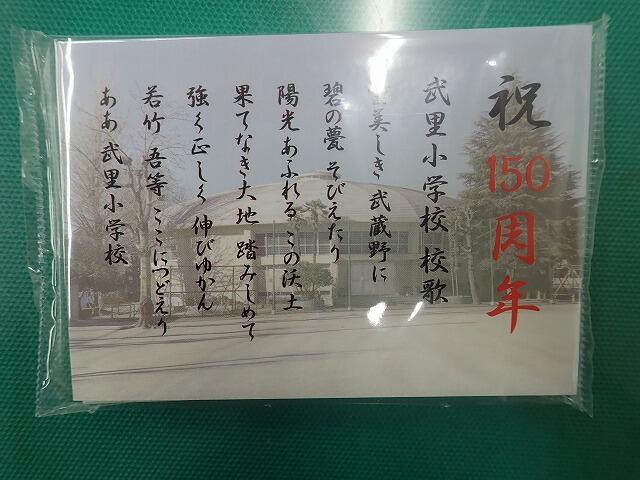 祝150周年
武里小学校 校歌
美しき 武蔵野に
碧の甍 そびえたり
陽光あふれる この沃土
果てなき大地 踏みしめて
強く正しく 伸びゆかん
若竹 吾等 ここにつどえり
ああ 武里小学校